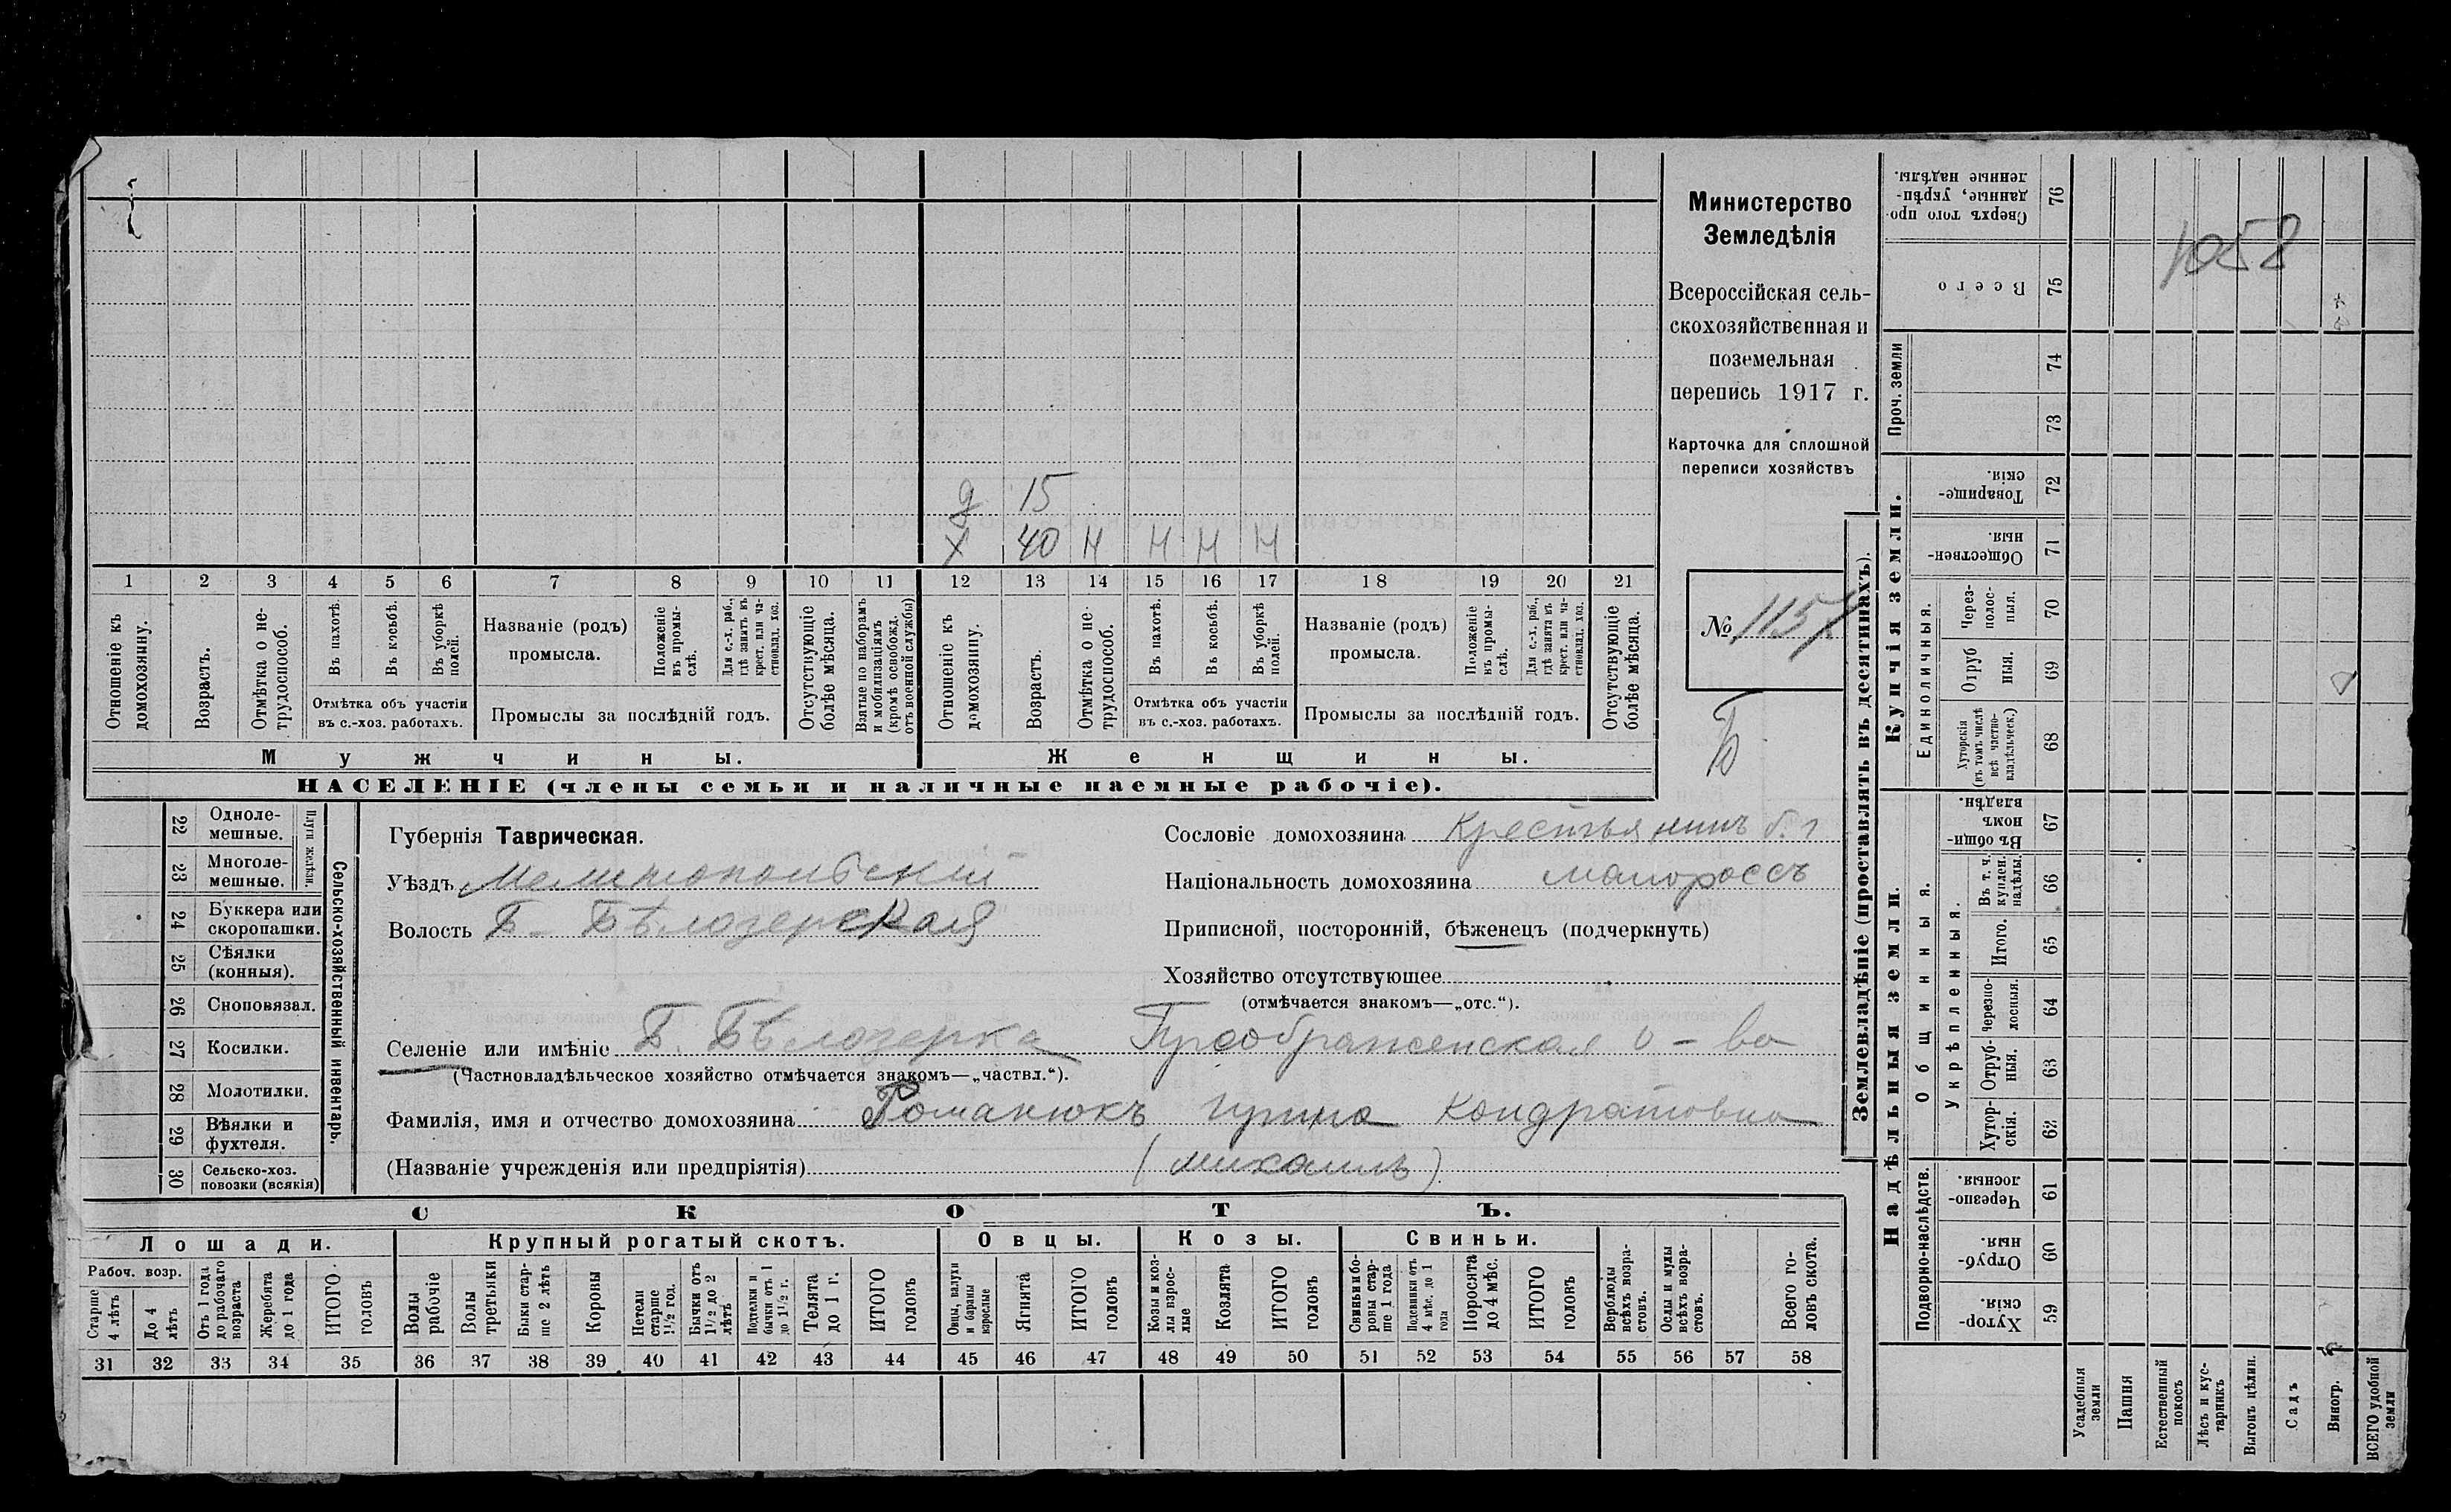 Министерство
Земледѣлія
Всероссійская сель-
скохозяйственная и
поземельная
перепись 1917 г.
Карточка для сплошной
переписи хозяйствъ
№ 1157
Б
1058
д 15
х 40 н н н н
1 2 3 4 5 6 7 8 9 10 11 12 13 14 15 16 17 18 19 20 21
Отношеніе къ домохозяину.
Возрастъ.
Отмѣтка о не-трудоспособ.
Въ пахотѣ.
Въ косьбѣ.
Въ уборкѣ полей.
Отмѣтка объ участіи
въ с.-хоз. работахъ.
Названіе (родъ)
промысла.
Положеніе въ промы-слѣ.
Для с.-х. раб., гдѣ занятъ въ крест. или ча-стновлад. хоз.
Промыслы за послѣдній годъ.
Отсутствующіе болѣе мѣсяца.
Взятые по наборамъ и мобилизаціямъ (кромѣ освобожд. отъ военной службы)
Отношеніе къ домохозяину.
Возрастъ.
Отмѣтка о не-трудоспособ.
Въ пахотѣ.
Въ косьбѣ.
Въ уборкѣ полей.
Отмѣтка объ участіи
въ с.-хоз. работахъ.
Названіе (родъ)
промысла.
Положеніе въ промы-слѣ.
Для с.-х. раб., гдѣ занята въ крест. или ча-стновлад. хоз.
Промыслы за послѣдній годъ.
Отсутствующіе болѣе мѣсяца.
Мужчины.
Женщины.
НАСЕЛЕНІЕ (члены семьи и наличные наемные рабочіе).
22 Одноле-мешные.
23 Многоле-мешные.
Плуги желѣзн.
24 Буккера или скоропашки.
25 Сѣялки (конныя).
26 Сноповязал.
27 Косилки.
28 Молотилки.
29 Вѣялки и фухтеля.
30 Сельско-хоз. повозки (всякія)
Сельско-хозяйственный инвентарь.
Губернія Таврическая.
Уѣздъ Мелитопольскій
Волость Б. Бѣлозерская
Сословіе домохозяина Крестьянинъ
Національность домохозяина малороссъ
Приписной, посторонній, бѣженецъ (подчеркнуть)
Хозяйство отсутствующее
(отмѣчается знакомъ—„отс.“).
Селеніе или имѣніе Б. Бѣлозерка Преображенская о-ва
(Частновладѣльческое хозяйство отмѣчается знакомъ—„частвл.“).
Фамилія, имя и отчество домохозяина Романюкъ Ирина Кондратовна
(Названіе учрежденія или предпріятія) (Михаилъ)
СКОТЪ.
Лошади.
Крупный рогатый скотъ.
Овцы.
Козы.
Свиньи.
Рабоч. возр.
Старше 4 лѣтъ
До 4 лѣтъ
Отъ 1 года до рабочаго возраста
Жеребята до 1 года
ИТОГО головъ
Волы рабочіе
Волы третьяки
Быки стар-ше 2 лѣтъ
Коровы
Нетели старше 1½ год.
Бычки отъ 1½ до 2 лѣтъ
Подтелки и бычки отъ 1 до 1½ г.
Телята до 1 г.
ИТОГО головъ
Овцы, валухи и бараны взрослые
Ягнята
ИТОГО головъ
Козы и коз-лы взрос-лые
Козлята
ИТОГО головъ
Свиньи и бо-ровы стар-ше 1 года
Подсвинки отъ 4 мѣс. до 1 года
Поросята до 4 мѣс.
ИТОГО головъ
Верблюды всѣхъ возра-стовъ.
Ослы и мулы всѣхъ возра-стовъ.
Всего го-ловъ скота.
31 32 33 34 35 36 37 38 39 40 41 42 43 44 45 46 47 48 49 50 51 52 53 54 55 56 57 58
Землевладѣніе (проставлять въ десятинахъ).
Сверхъ того про-данные, укрѣп-ленные надѣлы. 76
Всего 75
Проч. земли
74
73
Купчія земли.
Товарище-скія. 72
Обществен-ныя. 71
Единоличныя.
Через-полос-ныя. 70
Отруб ныя. 69
Хуторскія (въ томъ числѣ всѣ частно-владѣльческ.) 68
Надѣльныя земли.
Общинныя.
Въ общи-номъ владѣн. 67
Укрѣпленныя.
Въ т. ч. куплен. надѣлы. 66
Итого. 65
Черезпо-лосныя. 64
Отруб-ныя. 63
Хутор-скія. 62
Подворно-наслѣдств.
Черезпо-лосныя. 61
Отруб-ныя. 60
Хутор-скія. 59
Усадебныя земли
Пашня
Естественный покосъ
Лѣсъ и кус-тарникъ
Выгонъ цѣлин.
Садъ
Виногр.
ВСЕГО удобной земли